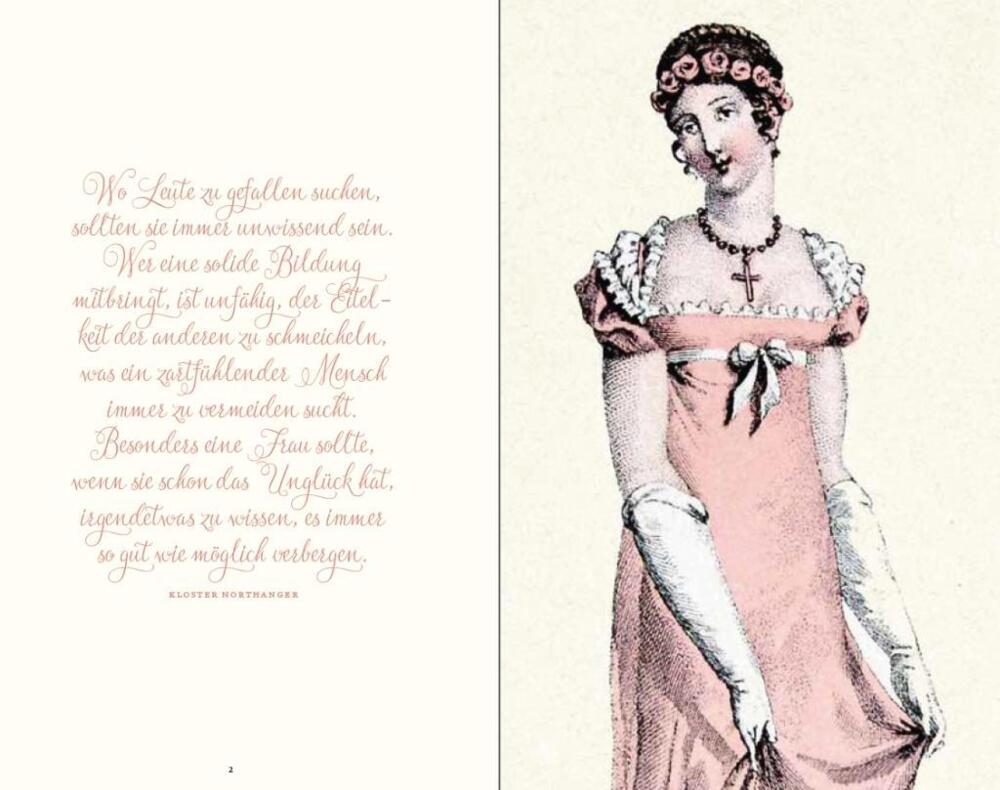 Wo Leute zu gefallen suchen,
sollten sie immer unwissend sein.
Wer eine solide Bildung
mitbringt, ist unfähig, der Eitel-
keit der anderen zu schmeicheln,
was ein zartfühlender Mensch
immer zu vermeiden sucht.
Besonders eine Frau sollte,
wenn sie schon das Unglück hat,
irgendetwas zu wissen, es immer
so gut wie möglich verbergen.
KLOSTER NORTHANGER
2